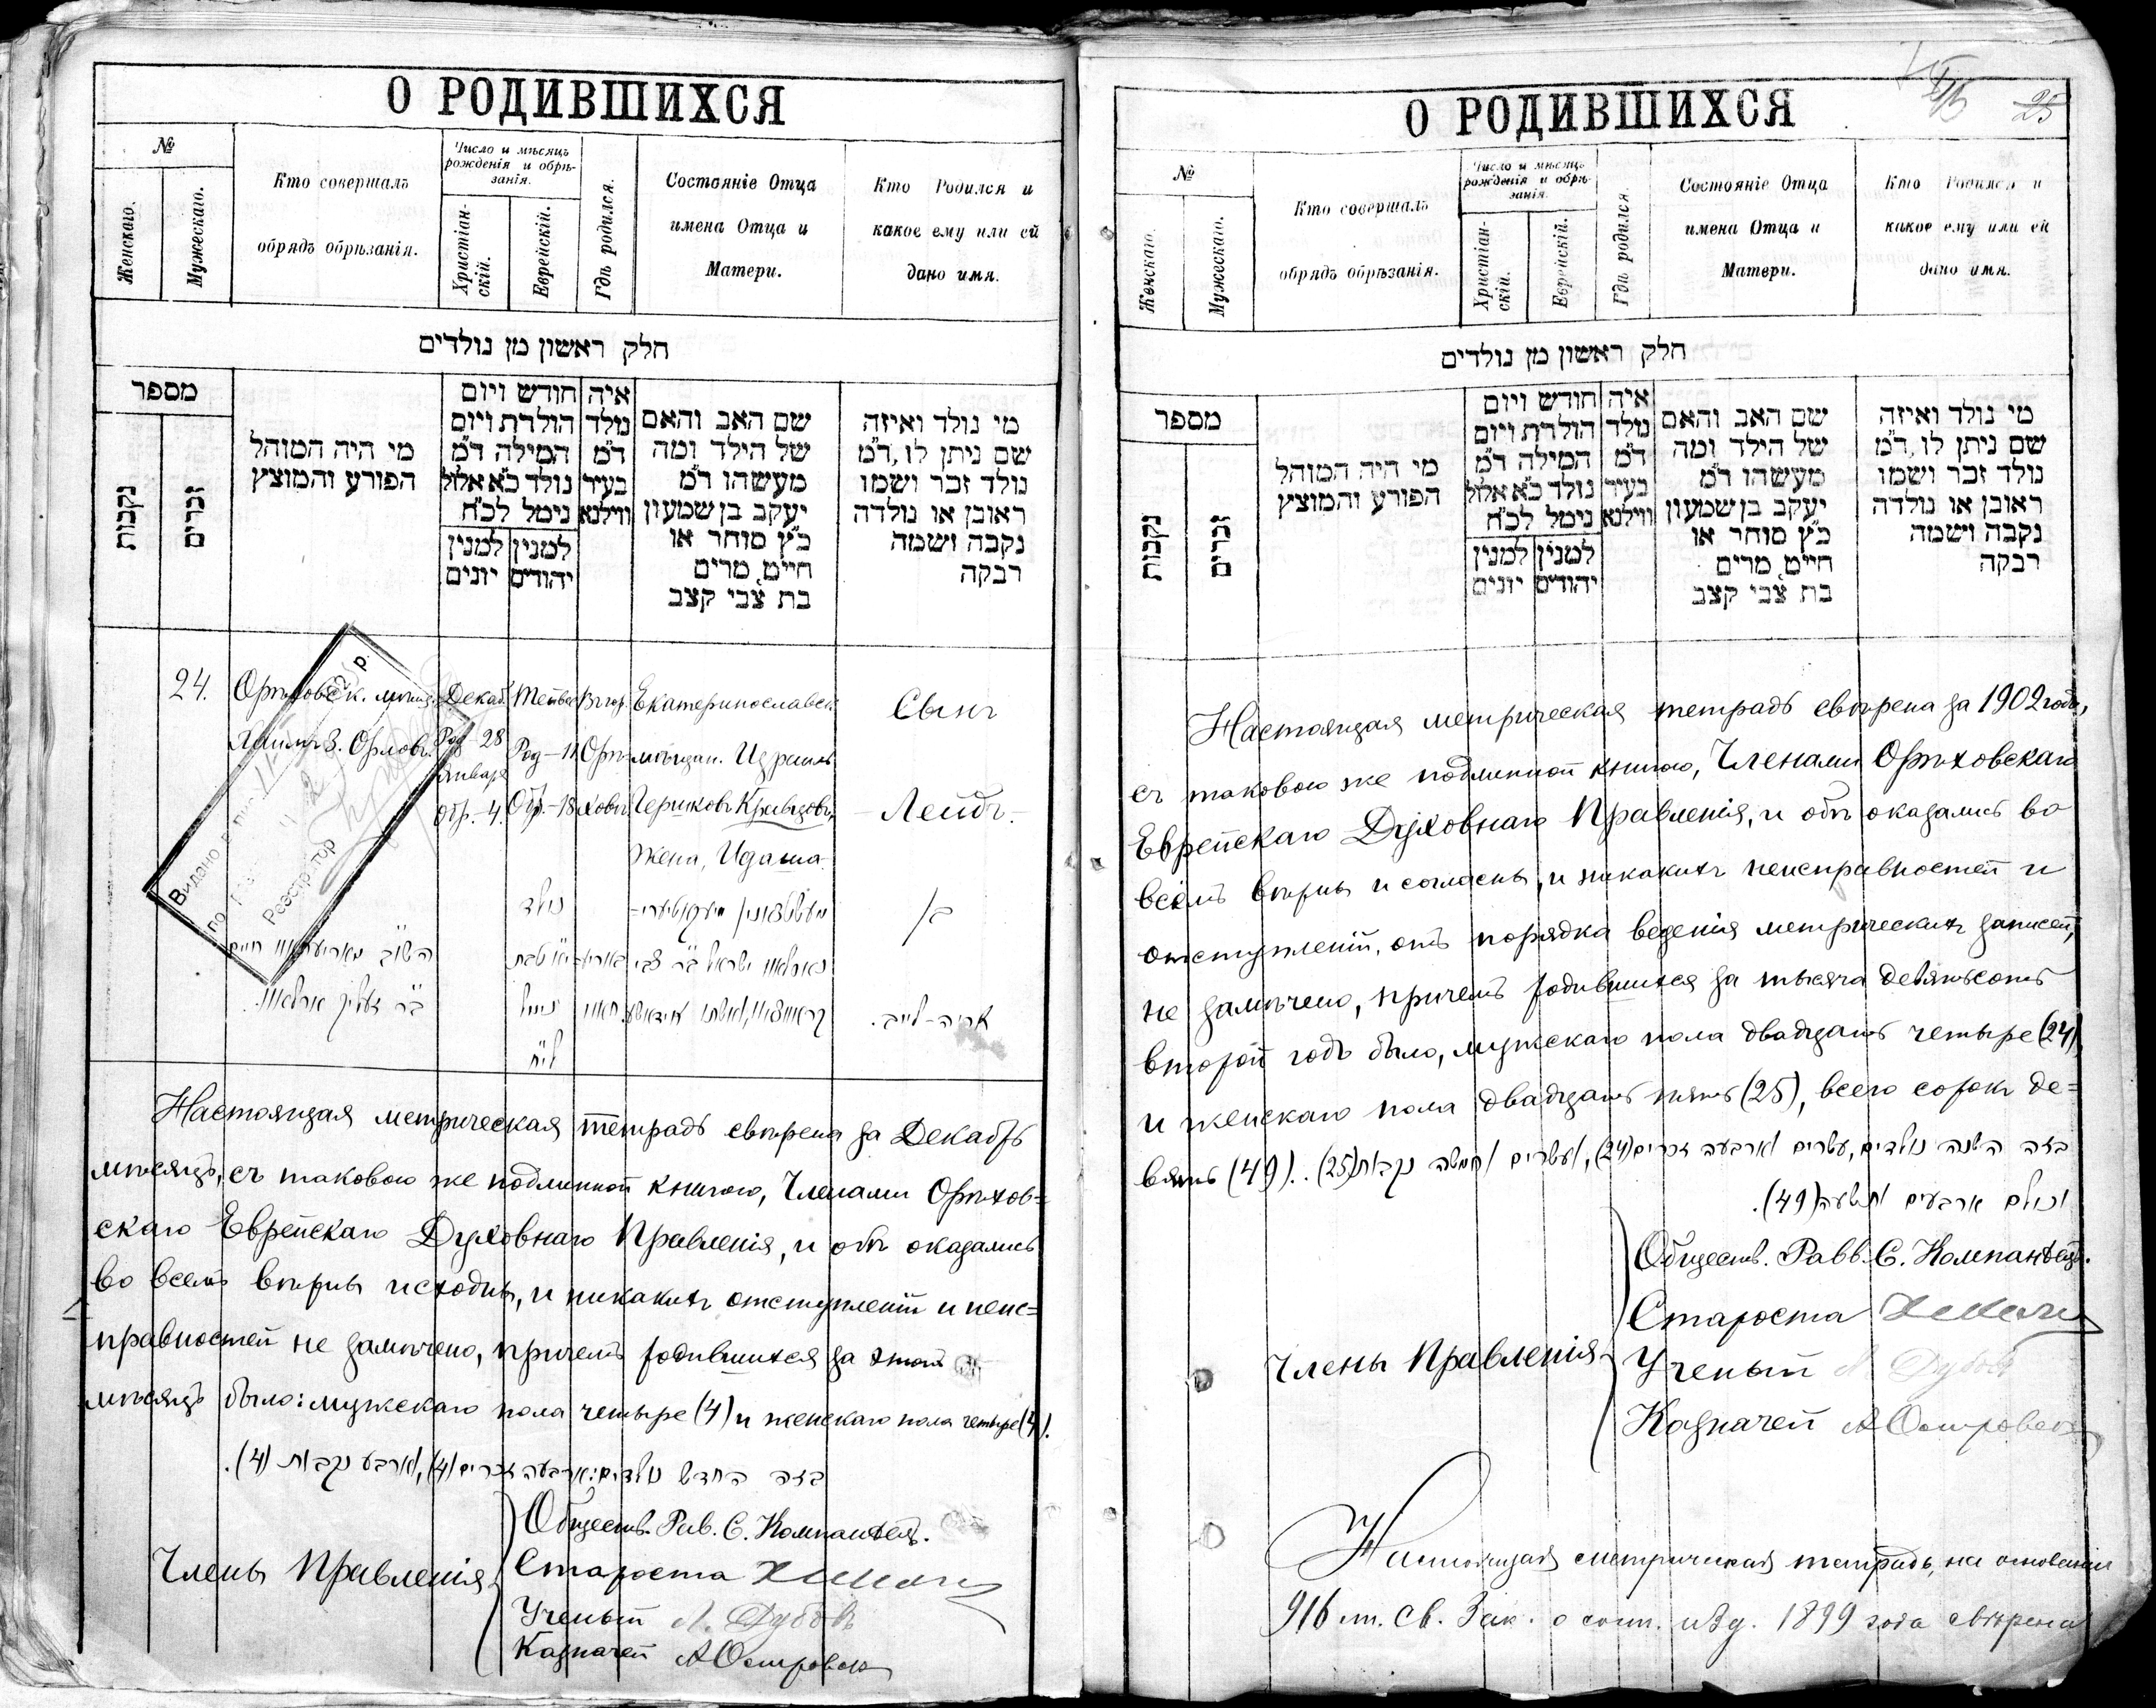 О РОДИВШИХСЯ
№
Женскаго.
Мужескаго.
Кто совершалъ
обрядъ обрѣзанія.
Число и мѣсяцъ
рожденія и обрѣ-
занія.
Христіан-
скій.
Еврейскій.
Гдѣ родился.
Состояніе Отца
имена Отца и
Матери.
Кто Родился и
какое ему или ей
дано имя.
חלק ראשון מן נולדים
מספר
נקבות
זכרים
מי היה המוהל
הפורע והמוצץ
חודש ויום
הולדת ויום
המילה ד״מ
נולד כ״א אלול
נימל לכ״ח
למנין
יהודים
למנין
יונים
איה
נולד
ד״מ
בעיר
ווילנא
שם האב והאם
של הילד ומה
מעשהו ד״מ
יעקב בן שמעון
כ״ץ סוחר או
חייט, מרים
בת צבי קצב
מי נולד ואיזה
שם ניתן לו, ד״מ
נולד זכר ושמו
ראובן או נולדה
נקבה ושמה
רבקה
24.
Орѣховск. мѣщ.
Хаимъ З. Орловъ.
Декаб.
Род-28
Января
Обр.-4.
Тейвес
Род-11
Обр.-18
Въ гор.
Орѣ-
ховѣ
Екатеринославск.
мѣщан. Израиль
Гершковъ Кривцовъ,
жена, Идаша
Сынъ
-Лейбъ-
Видано
по
Реєстратор
р.
נולד
י״א טבת
נימול
לי״ח
בן
אריה-לייב.
Настоящая метрическая тетрадь свѣрена за Декабрь
мѣсяцъ, съ таковою же подлинной книгою, Членами Орѣхов=
скаго Еврейскаго Духовнаго Правленія, и обѣ оказались
во всемъ вѣрны и сходны, и никакихъ отступленій и неис=
правностей не замѣчено, причемъ родившихся за этотъ
мѣсяцъ было: мужскаго пола четыре (4) и женскаго пола четыре (4).
בזה החדש נולדים: ארבעה זכרים (4), וארבע נקבות (4).
Члены Правленія
Обществ. Рав. С. Компанѣецъ.
Староста
Ученый Л. Дубовъ
Казначей А Островск
О РОДИВШИХСЯ
25
№
Женскаго.
Мужескаго.
Кто совершалъ
обрядъ обрѣзанія.
Число и мѣсяцъ
рожденія и обрѣ-
занія.
Христіан-
скій.
Еврейскій.
Гдѣ родился.
Состояніе Отца
имена Отца и
Матери.
Кто Родился и
какое ему или ей
дано имя.
חלק ראשון מן נולדים
מספר
נקבות
זכרים
מי היה המוהל
הפורע והמוצץ
חודש ויום
הולדת ויום
המילה ד״מ
נולד כ״א אלול
נימל לכ״ח
למנין
יהודים
למנין
יונים
איה
נולד
ד״מ
בעיר
ווילנא
שם האב והאם
של הילד ומה
מעשהו ד״מ
יעקב בן שמעון
כ״ץ סוחר או
חייט, מרים
בת צבי קצב
מי נולד ואיזה
שם ניתן לו, ד״מ
נולד זכר ושמו
ראובן או נולדה
נקבה ושמה
רבקה
Настоящая метрическая тетрадь свѣрена за 1902 годъ,
съ таковою же подлинной книгою, Членами Орѣховскаго
Еврейскаго Духовнаго Правленія, и обѣ оказались во
всемъ вѣрны и согласны, и никакихъ неисправностей и
отступленій, отъ порядка веденія метрическихъ записей,
не замѣчено, причемъ родившихся за тысяча девятьсотъ
второй годъ было, мужскаго пола двадцать четыре (24)
и женскаго пола двадцать пять (25), всего сорокъ де=
вять (49).
בזה השנה נולדים, עשרים וארבעה זכרים (24), ועשרים וחמשה נקבות (25).
וכולם ארבעים ותשעה (49).
Члены Правленія
Обществ. Равв. С. Компанѣецъ.
Староста
Ученый Л. Дубовъ
Казначей А Островск
Настоящая метрическая тетрадь, на основаніи
916 ст. Св. Зак. о сост. изд. 1899 года свѣрена